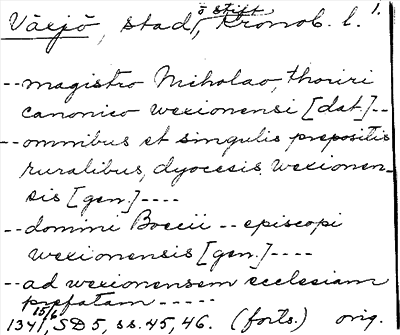 Växjö, stad, o stift, Kronob. l. 1.
--magistro Nicholao, thoriri
canonico wexionensi [dat.]--
--omnibus et singulis prepositis
ruralibus, dyocesis, wexionen-
sis [gen.]----
--domini Boecii -- episcopi
wexionensis [gen.]----
--ad wexionensem ecclesiam
prefatam-----
1341 15/6, SD 5, ss. 45, 46. (forts.) orig.